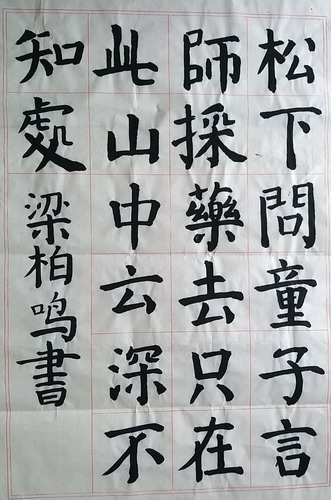 松下問童子言
師採藥去只在
此山中云深不
知處
梁柏鸣書